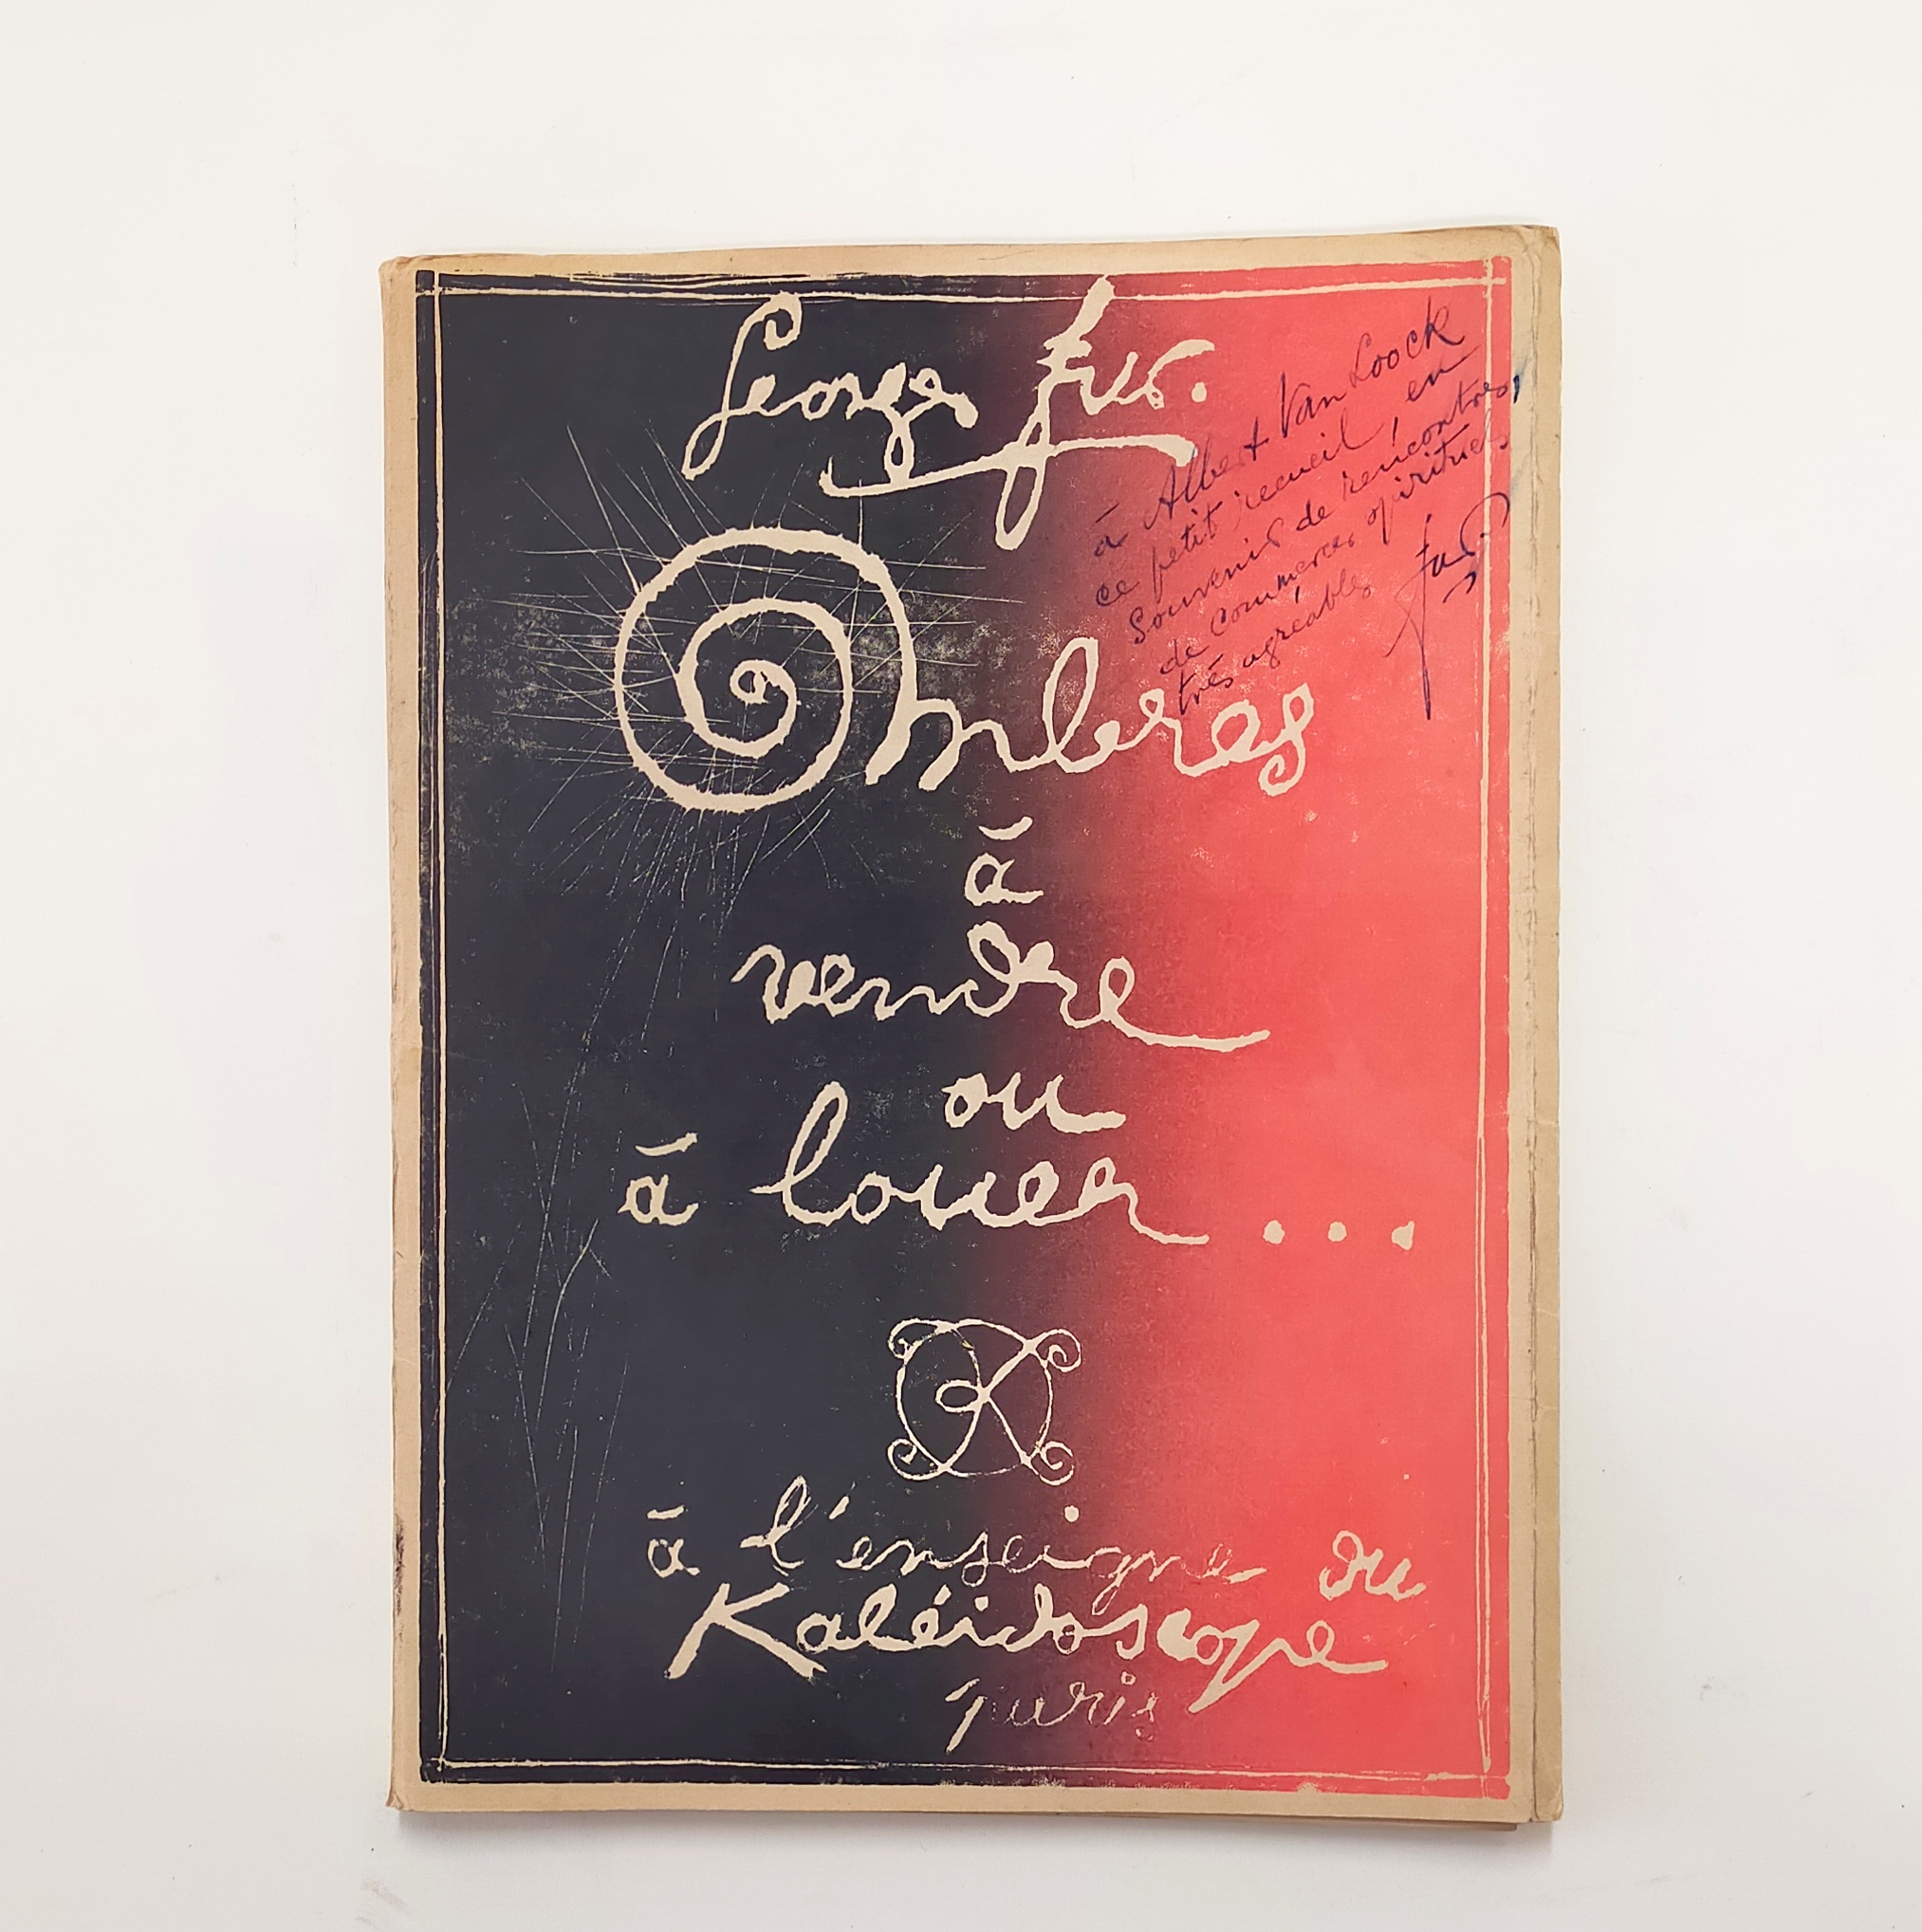 Georges Fus.
Ombres
à
vendre
ou
à louer...
K
à l'enseigne du
Kaléidoscope
paris
à Albert Van Loock
ce petit recueil, en
souvenir de rencontres,
de commerces spirituels
très agréables
Fus